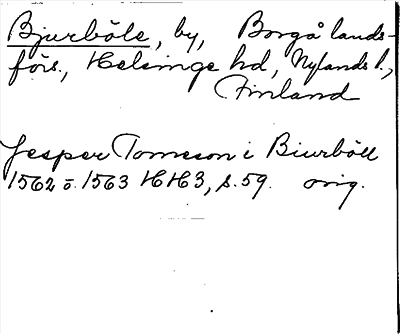 Bjurböle, by, Borgå lands-
förs., Helsinge hd, Nylands l.,
Finland
Jesper Tomeson i Biurböll
1562 o. 1563 HH3, s. 59. orig.